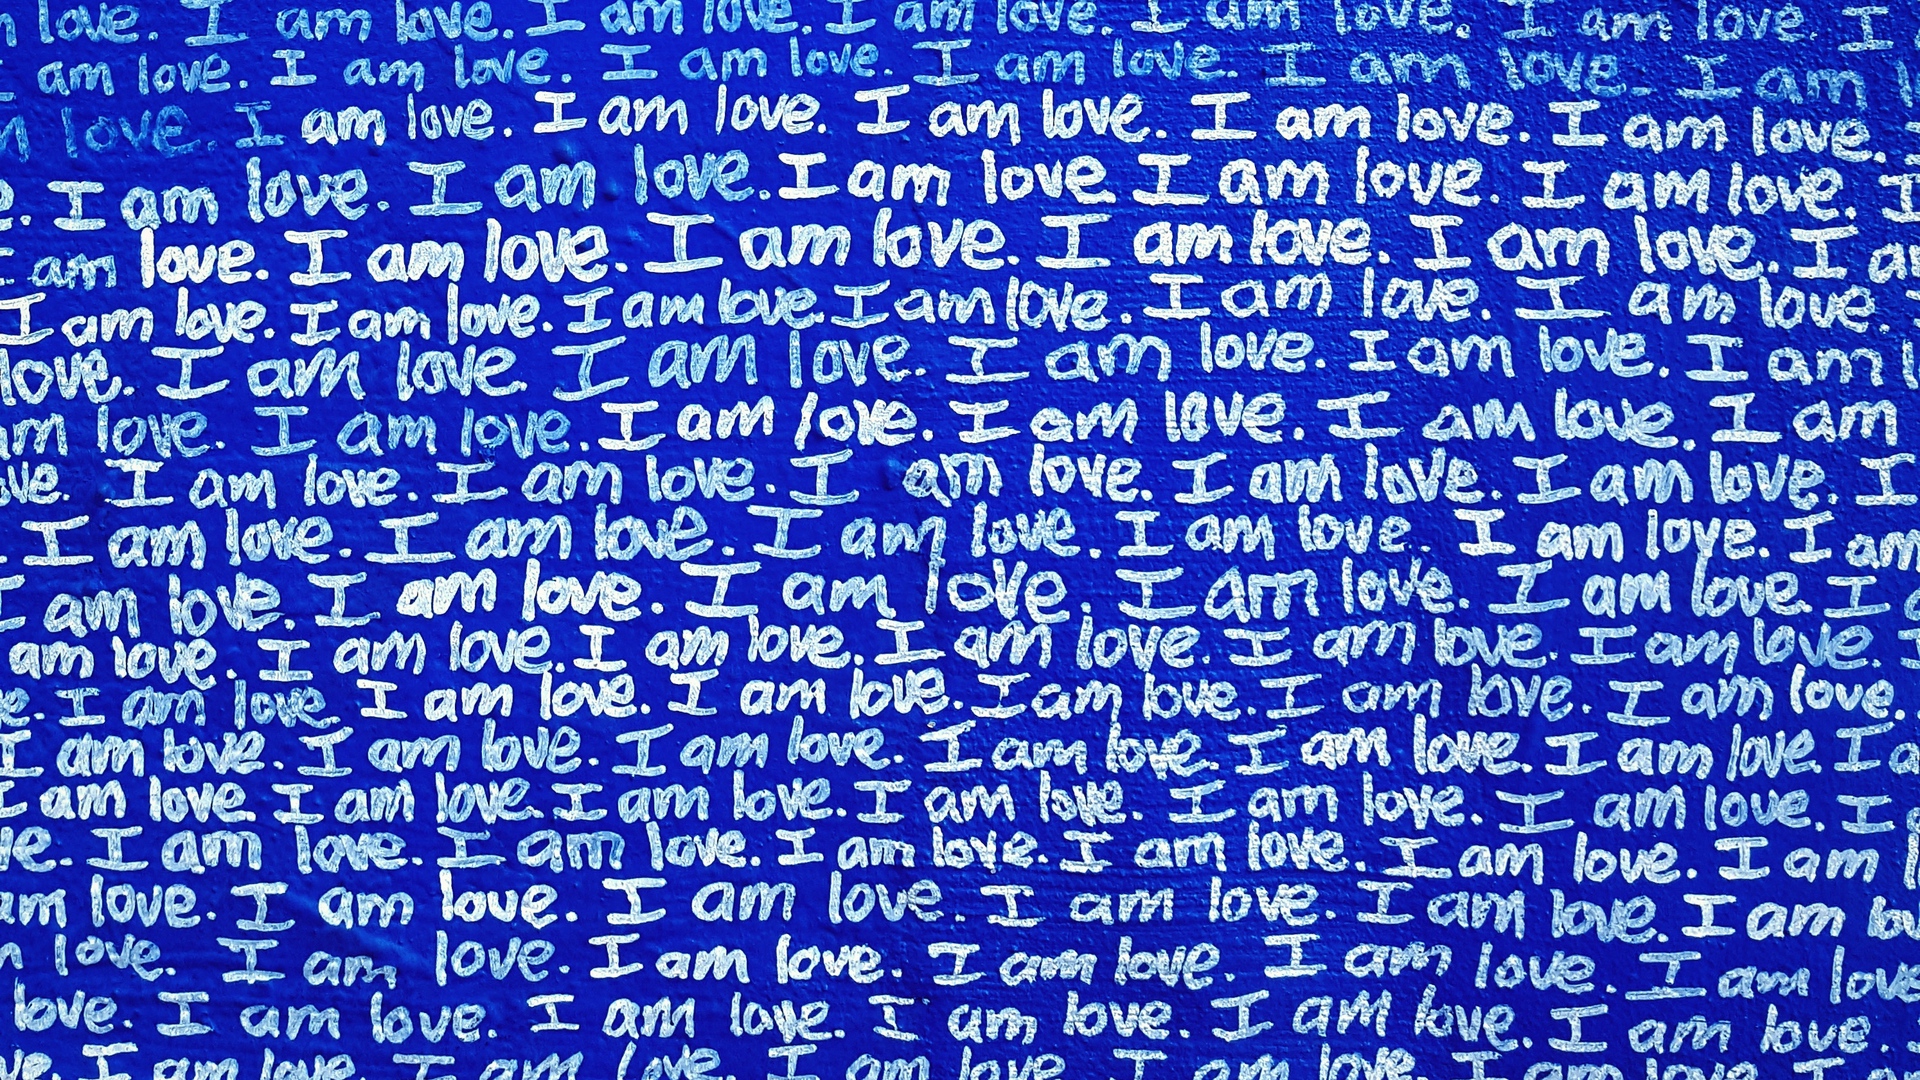 love. I am love. I am love. I am love. I am love. I am love. I
am love. I am love. I am love. I am love. I am love. I am
love. I am love. I am love. I am love. I am love. I am love.
. I am love. I am love. I am love. I am love. I am love. I
am love. I am love. I am love. I am love. I am love. I
I am love. I am love. I am love. I am love. I am love. I am love.
love. I am love. I am love. I am love. I am love. I am
am love. I am love. I am love. I am love. I am love. I am
I am love. I am love. I am love. I am love. I am love. I
I am love. I am love. I am love. I am love. I am love. I am
I am love. I am love. I am love. I am love. I am love. I
am love. I am love. I am love. I am love. I am love. I am love.
I am love. I am love. I am love. I am love. I am love. I am love.
I am love. I am love. I am love. I am love. I am love. I am love. I
I am love. I am love. I am love. I am love. I am love. I am love. I
I am love. I am love. I am love. I am love. I am love. I am
am love. I am love. I am love. I am love. I am love. I am
love. I am love. I am love. I am love. I am love. I am love
love. I am love. I am love. I am love. I am love. I am love.
I am love. I am love. I am love. I am love. I am love. I